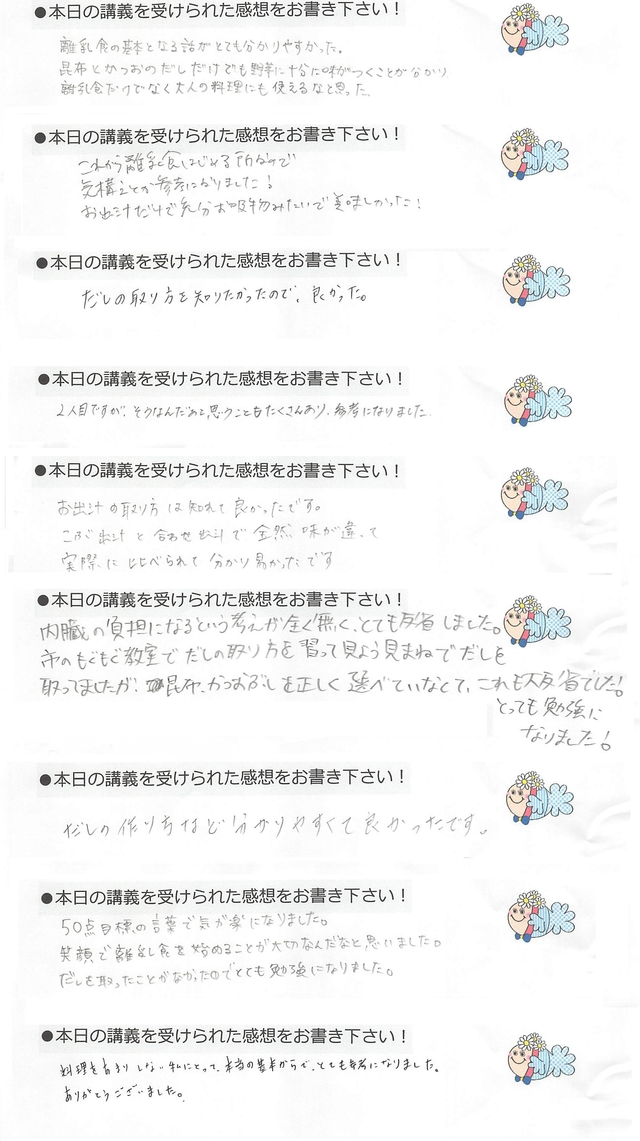 ●本日の講義を受けられた感想をお書き下さい！
離乳食の基本となる話がとても分かりやすかった。
昆布とかつおのだしだけでも野菜に十分に味がつくことが分かり
離乳食だけでなく大人の料理にも使えるなと思った
●本日の講義を受けられた感想をお書き下さい！
これから離乳食はじめる所なので
気構えとか参考になりました！
お出汁だけで充分お吸物みたいで美味しかった！
●本日の講義を受けられた感想をお書き下さい！
だしの取り方を知りたかったので、良かった。
●本日の講義を受けられた感想をお書き下さい！
2人目ですが、そうなんだあと思うこともたくさんあり、参考になりました。
●本日の講義を受けられた感想をお書き下さい！
お出汁の取り方は知れて良かったです。
こんぶ出汁と合わせ出汁で全然味が違って
実際に比べられて分かり易かったです
●本日の講義を受けられた感想をお書き下さい！
内臓の負担になるという考えが全く無く、とても反省しました。
市のもぐもぐ教室でだしの取り方を習って見よう見まねでだしを
取ってましたが、昆布、かつおぶしを正しく選べていなくて、これも大反省でした！
とっても勉強に
なりました！
●本日の講義を受けられた感想をお書き下さい！
だしの作り方など分かりやすくて良かったです。
●本日の講義を受けられた感想をお書き下さい！
50点目標の言葉で気が楽になりました。
笑顔で離乳食を始めることが大切なんだなと思いました。
だしを取ったことがなかったのでとても勉強になりました。
●本日の講義を受けられた感想をお書き下さい！
料理をあまりしない私にとって、本当の基本からで、とても参考になりました。
ありがとうございました。